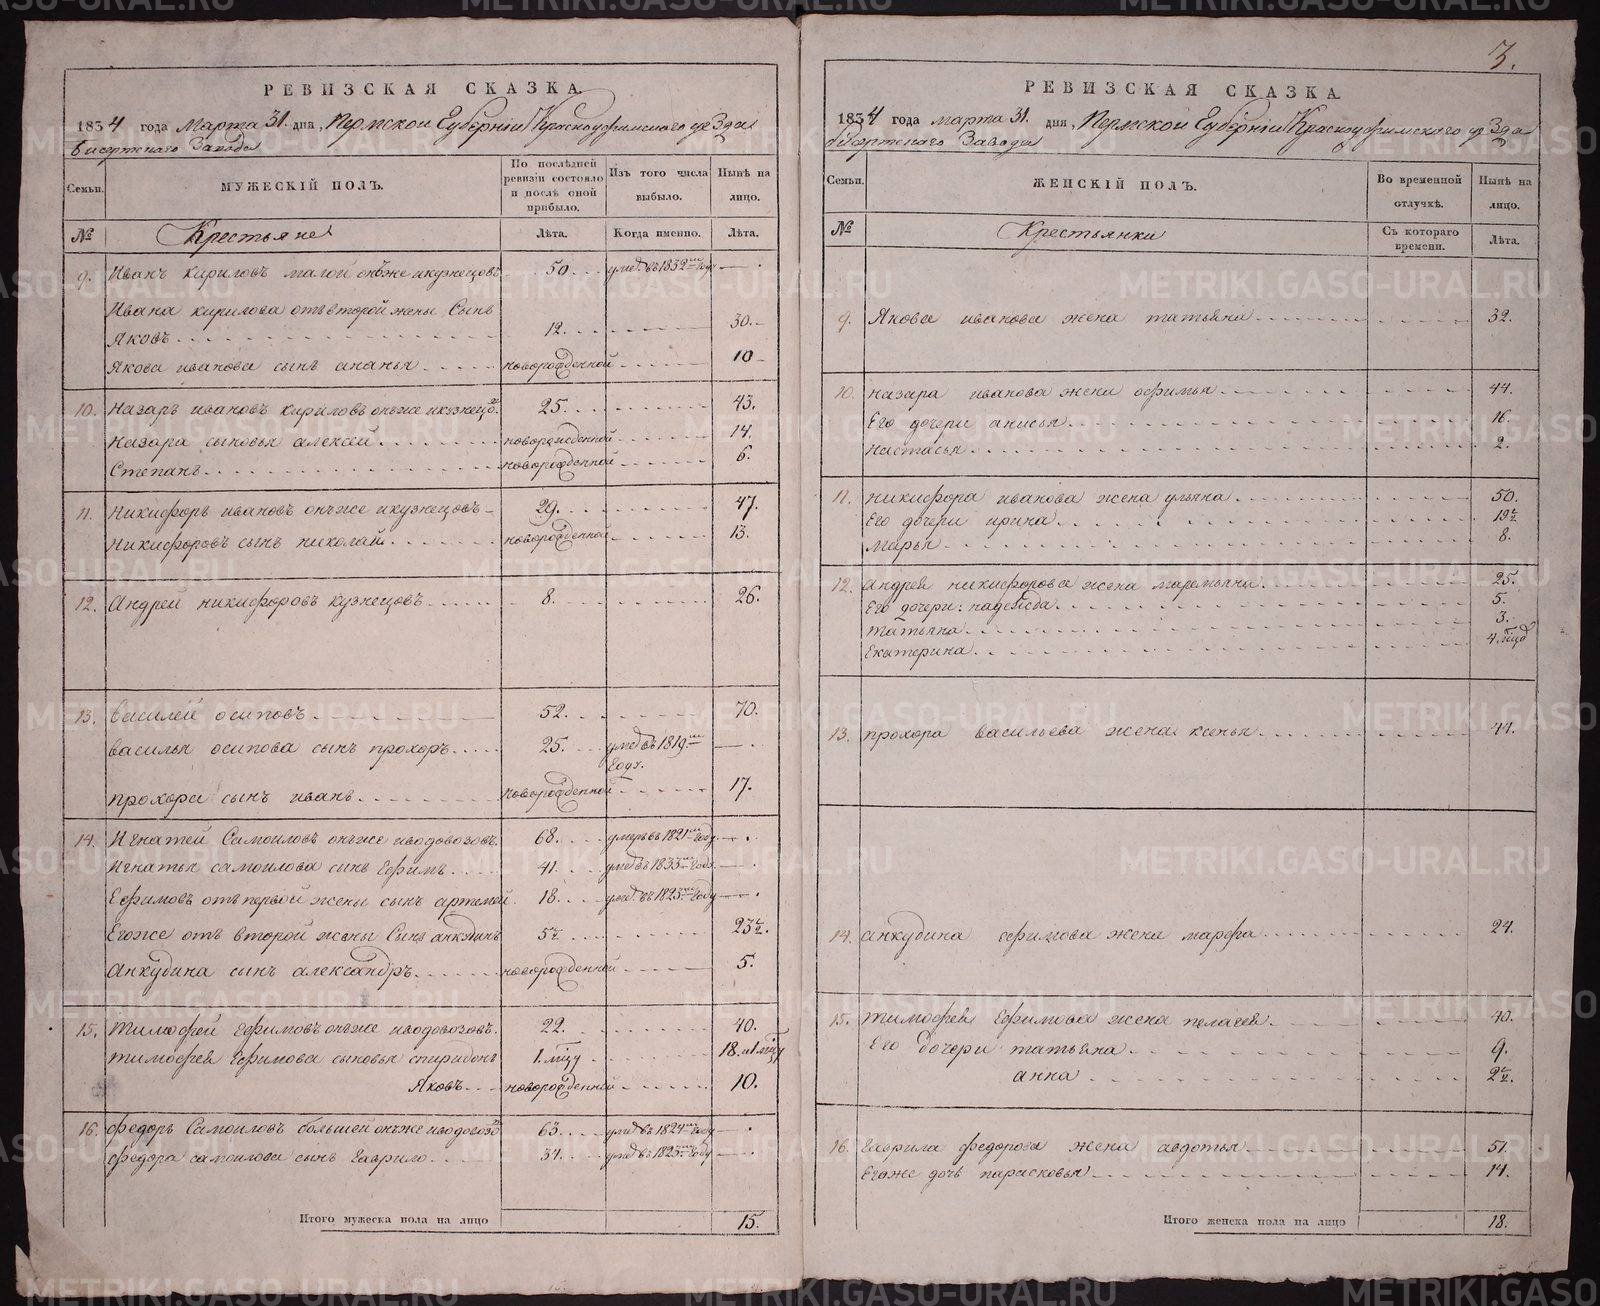 3.
РЕВИЗСКАЯ СКАЗКА.
1834 года Марта 31. дня, Пермской Губернiи Красноуфимского уезда
Бисертского Завода
Семьи.
МУЖЕСКІЙ ПОЛЪ.
По послѣдней ревизіи состояло и послѣ оной прибыло.
Изъ того числа выбыло.
Нынѣ на лицо.
№ Крестьяне Лѣта. Когда именно. Лѣта.
9. Иванъ кириловъ малой онъже икузнецовъ 50. умер. въ 1832м году —.
Ивана кирилова отъ второй жены Сынъ
Яковъ 12. 30.
Якова иванова сынъ ананья новорожденной 10
10. Назаръ ивановъ кириловъ онъже икузнецовъ. 25. 43.
Назара сыновья алексей новорожденной 14.
Степанъ новорожденной 6.
11. Никифоръ ивановъ онъже икузнецовъ 29. 47.
Никифоровъ сынъ николай новорожденной 13.
12. Андрей никифоровъ кузнецовъ 8. 26.
13. Василей осиповъ 52. 70.
Василья осипова сынъ прохоръ 25. умер въ 1819м Году. —.
прохора сынъ иванъ новорожденной 17.
14. Игнатей Самоиловъ онъже иводовозовъ 68. умеръ въ 1821м Году —.
Игнатья самоилова сынъ Ефимъ 41. умер въ 1833м Году —.
Ефимовъ отъ первой жены сынъ артемей 18. умер. въ 1823м Году —.
Егоже отъ второй жены Сынъ анкудинъ 5½ 23½.
Анкудина сынъ александръ новорожденной 5.
15. Тимофей Ефимовъ онъже иводовозовъ. 22. 40.
Тимофея Ефимова сыновья спиридонъ 1. мцу 18. и 1 мцу
Яковъ новорожденной 10.
16. Федоръ Самоиловъ большей онъже иводовозовъ 63. умер въ 1824м Году —.
Федора самоилова сынъ Гаврило 34. умер въ 1823м Году —.
Итого мужеска пола на лицо 15.
РЕВИЗСКАЯ СКАЗКА.
1834 года марта 31. дня, Пермской Губернiи Красноуфимского уезда
бисертского Завода
Семьи.
ЖЕНСКІЙ ПОЛЪ.
Во временной отлучкѣ.
Нынѣ на лицо.
№ Крестьянки Съ котораго времени. Лѣта.
9. Якова иванова жена татьяна 32.
10. назара иванова жена офимья 44.
Его дочери анисья 16.
Настасья 2.
11. никифора иванова жена ульяна 50.
Его дочери ирина 19½
Марья 8.
12. андрея никифорова жена маремьяна 25.
Его дочери: надежда 5.
татьяна 3.
Екатерина 4. мцо
13. прохора васильева жена ксенья 44.
14. анкудина ефимова жена марфа 24.
15. тимофея Ефимова жена пелагея. 40.
Его дочери татьяна 9.
анна 2½.
16. Гаврила федорова жена авдотья 51.
Егоже дочь парасковья 14.
Итого женска пола на лицо 18.
METRIKI.GASO-URAL.RU